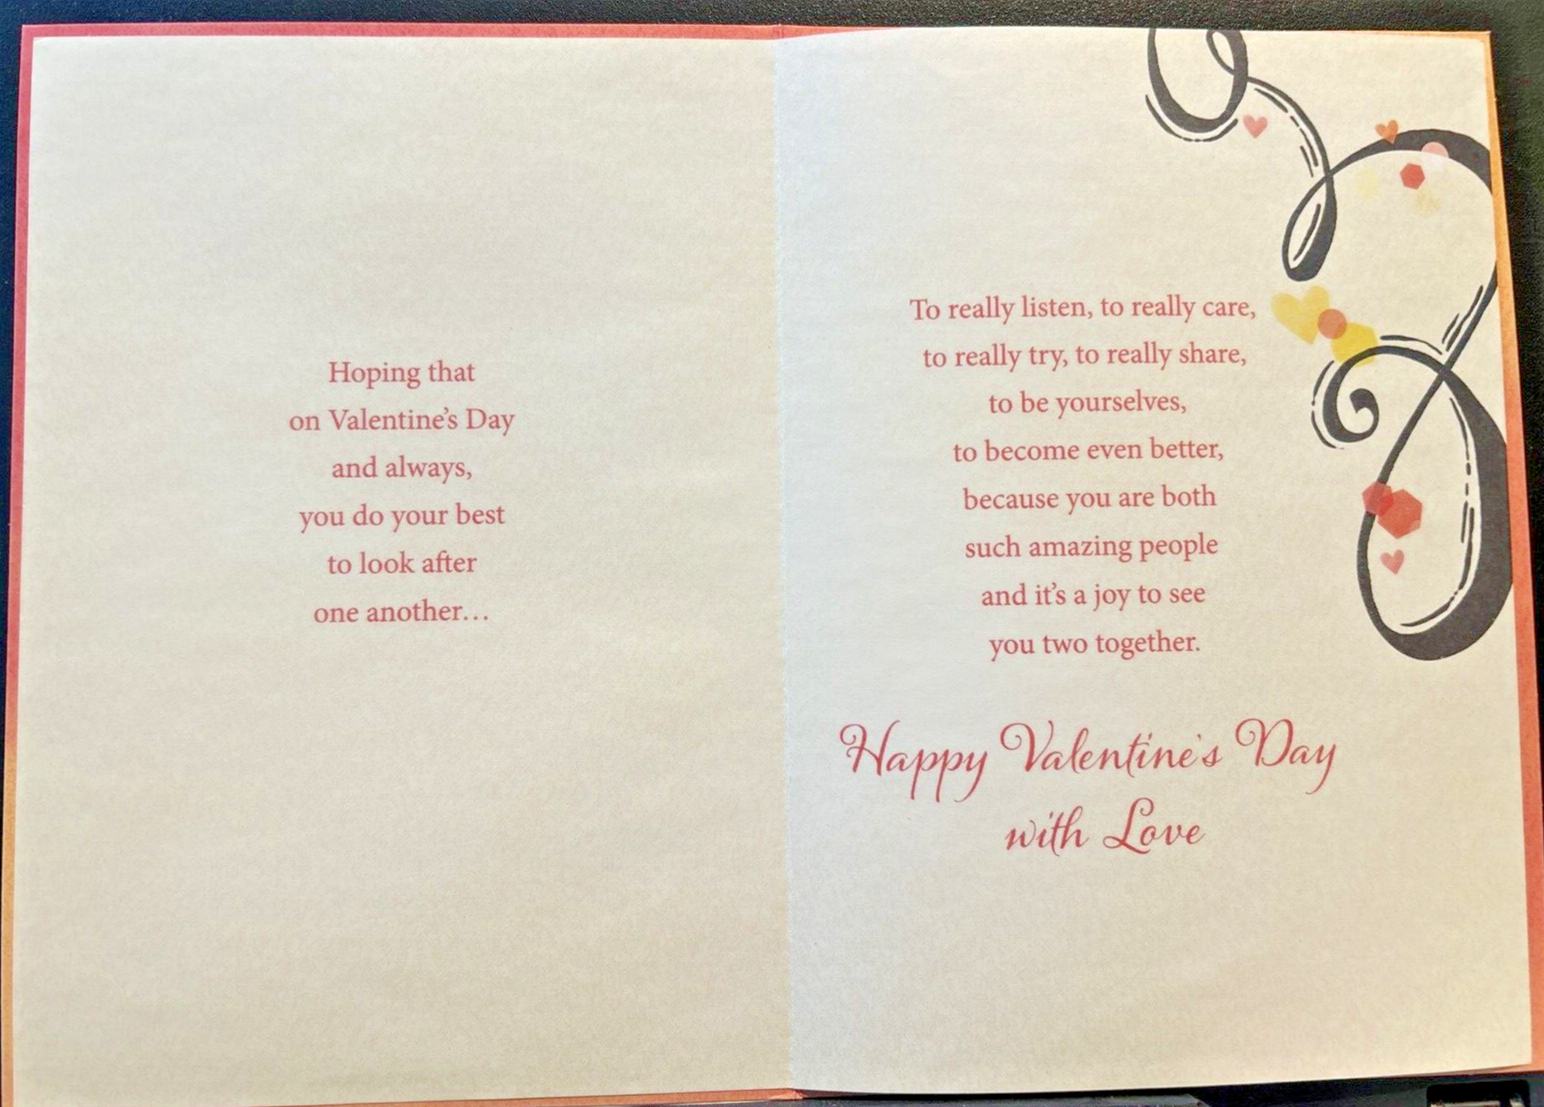 Hoping that
on Valentine's Day
and always,
you do your best
to look after
one another...
To really listen, to really care,
to really try, to really share,
to be yourselves,
to become even better,
because you are both
such amazing people
and it's a joy to see
you two together.
Happy Valentine's Day
with Love